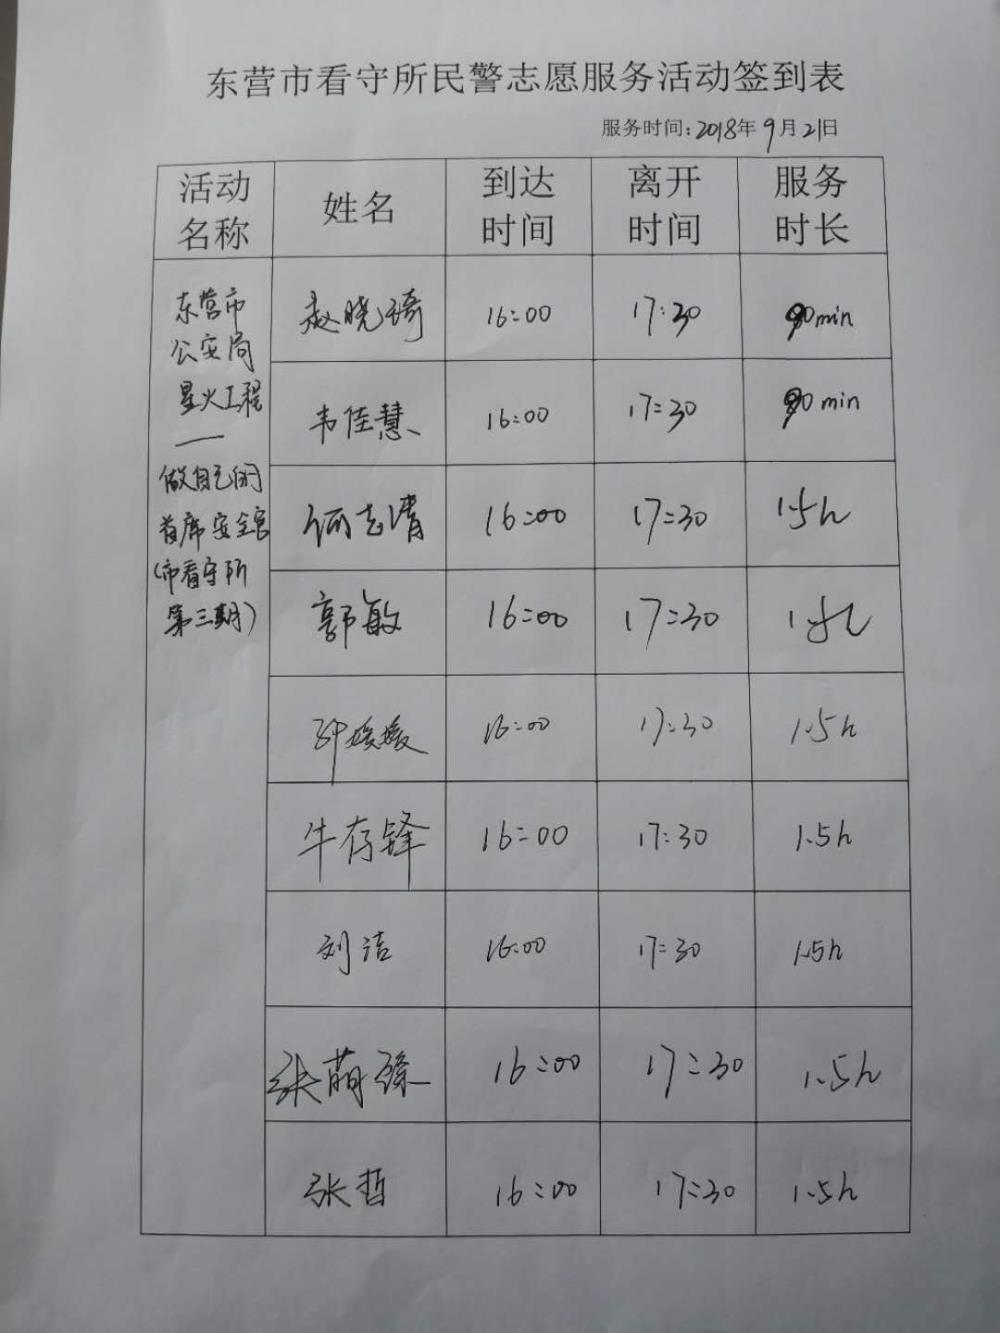 东营市看守所民警志愿服务活动签到表
服务时间:2018年9月21日
活动名称 姓名 到达时间 离开时间 服务时长
东营市
公安局
星火工程
—
做自己的
首席安全官
(市看守所
第三期)
赵晓琦 16:00 17:30 90min
韦佳慧 16:00 17:30 90min
何志清 16:00 17:30 1.5h
郭敏 16:00 17:30 1.5h
媛媛 16:00 17:30 1.5h
牛存锋 16:00 17:30 1.5h
刘洁 16:00 17:30 1.5h
张萌 16:00 17:30 1.5h
张哲 16:00 17:30 1.5h